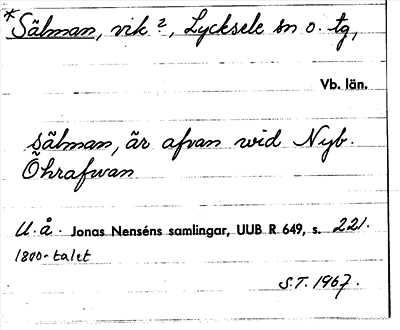 *Sälman, vik ?, Lycksele sn o. tg,
Vb. län.
sälman, är afvan wid Nyb.
Öhrafwan
U. å. Jonas Nenséns samlingar, UUB R 649, s. 221.
1800-talet
S.T. 1967.